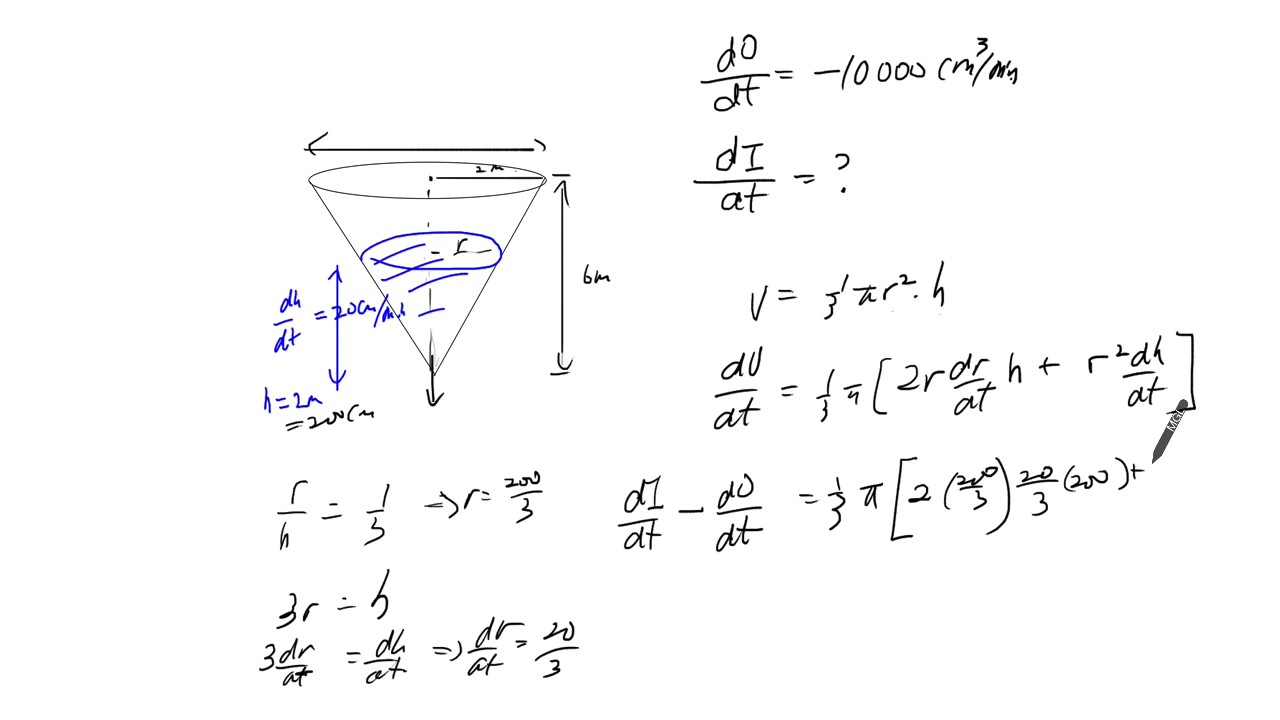 dO/dt = -10000 cm³/min
dI/dt = ?
2m
r
6m
dh/dt = 20cm/min
h=2m
=200cm
V = 1/3 πr². h
dV/dt = 1/3 π [2r dr/dt h + r² dh/dt]
r/h = 1/3 => r = 200/3
dI/dt - dO/dt = 1/3 π [2 (200/3) 20/3 (200) +
3r = h
3 dr/dt = dh/dt => dr/dt = 20/3